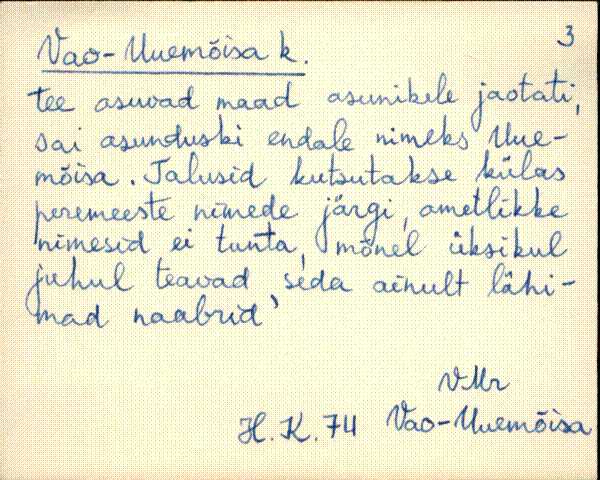 3
Vao-Uuemõisa k.
tee asuvad maad asunikele jaotati,
sai asunduski endale nimeks Uue-
mõisa. Talusid kutsutakse külas
peremeeste nimede järgi, ametlikke
nimesid ei tunta, mõnel üksikul
juhul teavad seda ainult lähi-
mad naabrid'
VMr
H.K. 74 Vao-Uuemõisa